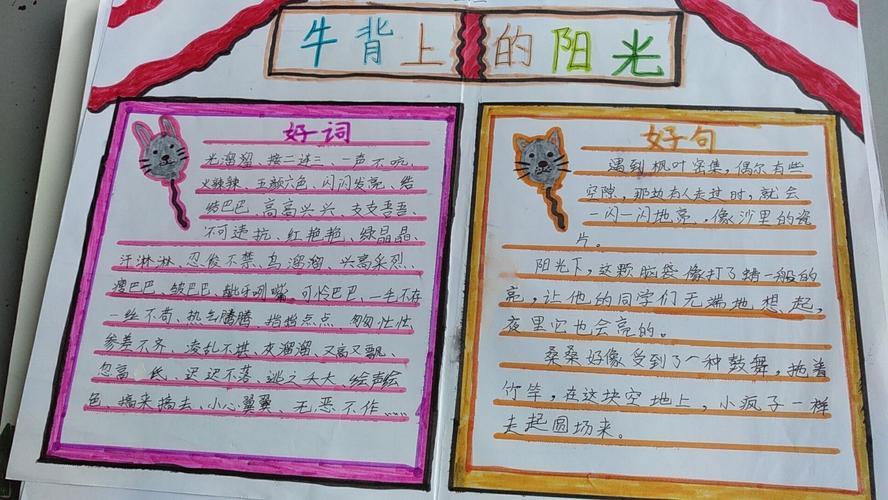 牛背上的阳光
好词
光溜溜、接二连三、一声不吭、
火辣辣、五颜六色、闪闪发亮、结
结巴巴、高高兴兴、支支吾吾、
不可违抗、红艳艳、绿晶晶、
汗淋淋、忍俊不禁、乌溜溜、兴高采烈、
瘦巴巴、皱巴巴、龇牙咧嘴、可怜巴巴、一毛不存
一丝不苟、热气腾腾、指指点点、匆匆忙忙
参差不齐、凌乱不堪、灰溜溜、又高又飘、
忽高忽低、迟迟不落、逃之夭夭、绘声绘
色、搞来搞去、小心翼翼、无恶不作……
好句
遇到枫叶密集，偶尔有些
空隙，那边有人走过时，就会
一闪一闪地亮，像沙里的瓷
片。
阳光下，这颗脑袋像打了蜡一般的
亮，让他的同学们无端地想起，
夜里它也会亮的。
桑桑好像受到了一种鼓舞，拖着
竹竿，在这块空地上，小疯子一样
走起圆场来。